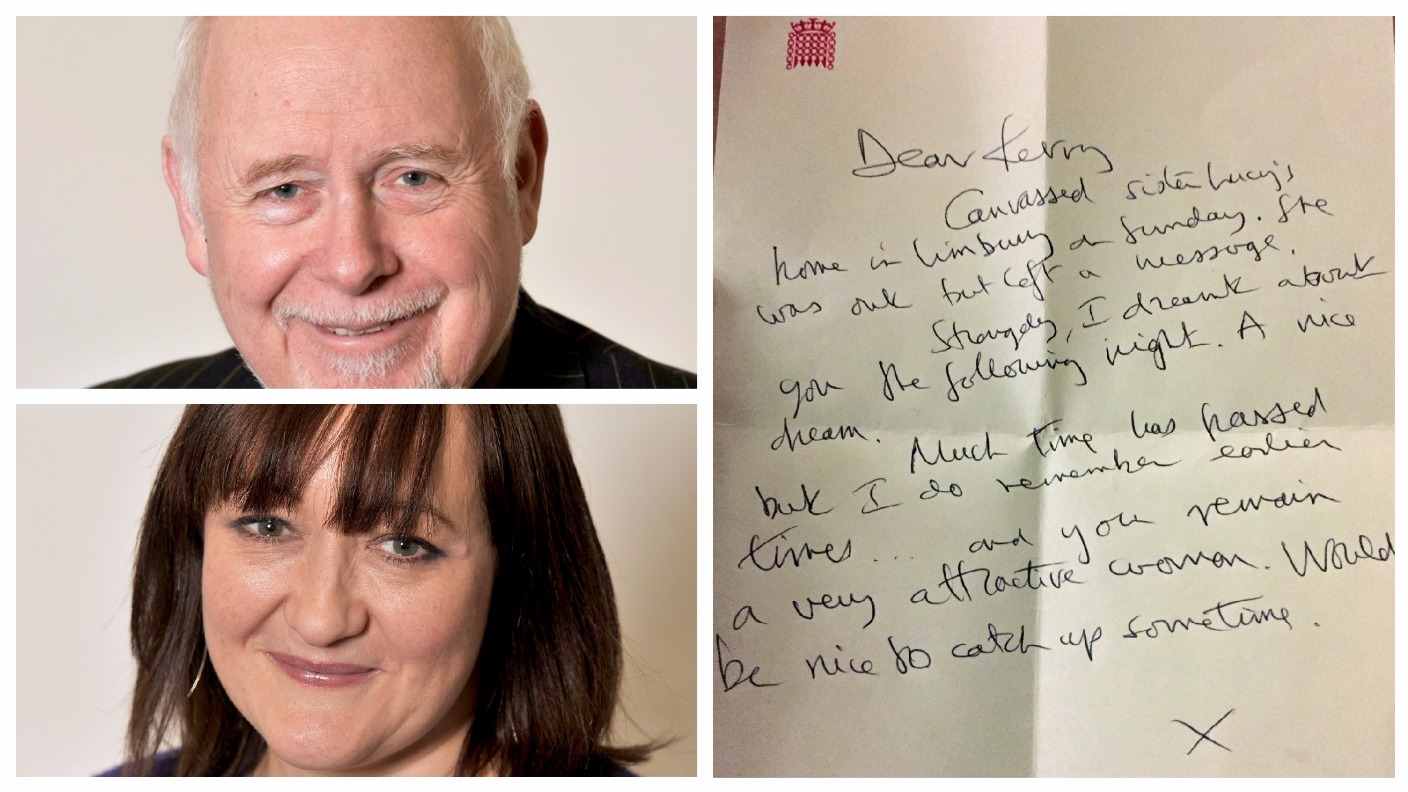 Dear Kerry
Canvassed sister Lucy's
home in Limbury on Sunday. She
was out but left a message.
Strangely, I dreamt about
you the following night. A nice
dream. Much time has passed
but I do remember earlier
times... and you remain
a very attractive woman. Would
be nice to catch up sometime.
X